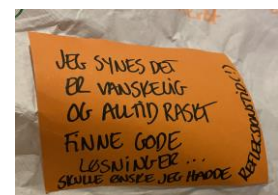 JEG SYNES DET
ER VANSKELIG
OG ALLTID RASKT
FINNE GODE
LØSNINGER...
SKULLE ØNSKE JEG HADDE
REFLEKSJONSTID(!)